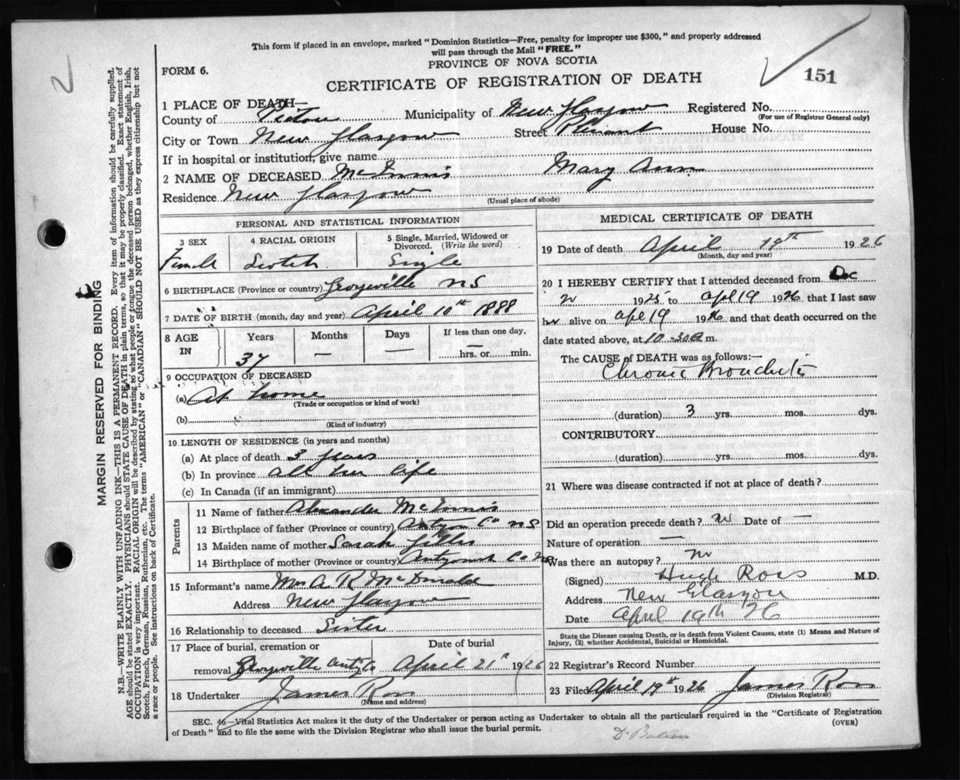 2
This form if placed in an envelope, marked "Dominion Statistics—Free, penalty for improper use $300," and properly addressed
will pass through the Mail "FREE."
PROVINCE OF NOVA SCOTIA
FORM 6.
CERTIFICATE OF REGISTRATION OF DEATH
151
MARGIN RESERVED FOR BINDING
N.B.—WRITE PLAINLY WITH UNFADING INK—THIS IS A PERMANENT RECORD. Every item of information should be carefully supplied.
AGE should be stated EXACTLY. PHYSICIANS should STATE CAUSE OF DEATH in plain terms, so that it may be properly classified. Exact statement of
OCCUPATION is very important. RACIAL ORIGIN will be described by stating to what people or tongue the deceased person belonged, whether English, Irish,
Scotch, French, German, Russian, Ruthenian, etc. The terms "AMERICAN" or "CANADIAN" SHOULD NOT BE USED as they express citizenship but not
a race or people. See instructions on back of Certificate.
1 PLACE OF DEATH—
County of Pictou Municipality of New Glasgow Registered No.
(For use of Registrar General only)
City or Town New Glasgow Street House No.
If in hospital or institution, give name
2 NAME OF DECEASED McInnis Mary Ann
Residence New Glasgow
(Usual place of abode)
PERSONAL AND STATISTICAL INFORMATION
3 SEX 4 RACIAL ORIGIN 5 Single, Married, Widowed or Divorced. (Write the word)
Female Scotch Single
6 BIRTHPLACE (Province or country) Georgeville N S
7 DATE OF BIRTH (month, day and year) April 10th 1888
8 AGE IN Years Months Days If less than one day,
37 — — hrs. or min.
9 OCCUPATION OF DECEASED
(a) At home
(Trade or occupation or kind of work)
(b)
(Kind of industry)
10 LENGTH OF RESIDENCE (in years and months)
(a) At place of death 3 years
(b) In province all her life
(c) In Canada (if an immigrant)
Parents
11 Name of father Alexander McInnis
12 Birthplace of father (Province or country) Co N S
13 Maiden name of mother Sarah Gillis
14 Birthplace of mother (Province or country) Antigonish Co
15 Informant's name Mrs A R McDonald
Address New Glasgow
16 Relationship to deceased Sister
17 Place of burial, cremation or Date of burial
removal Georgeville April 21st 1926
18 Undertaker James Ross
(Name and address)
MEDICAL CERTIFICATE OF DEATH
19 Date of death April 1926
(Month, day and year)
20 I HEREBY CERTIFY that I attended deceased from Dec
1925 to Apl 19 1926 that I last saw
her alive on Apl 19 1926 and that death occurred on the
date stated above, at 10 m.
The CAUSE OF DEATH was as follows:—
Chronic Bronchitis
(duration) 3 yrs. mos. dys.
CONTRIBUTORY
(duration) yrs. mos. dys.
21 Where was disease contracted if not at place of death?
Did an operation precede death? no Date of —
Nature of operation —
Was there an autopsy? no
(Signed) Hugh Ross M.D.
Address New Glasgow
Date April 19th 26
State the Disease causing Death, or in death from Violent Causes, state (1) Means and Nature of
Injury, (2) whether Accidental, Suicidal or Homicidal.
22 Registrar's Record Number
23 Filed April 19th 1926 James Ross
(Division Registrar)
SEC. 46—Vital Statistics Act makes it the duty of the Undertaker or person acting as Undertaker to obtain all the particulars required in the "Certificate of Registration
of Death" and to file the same with the Division Registrar who shall issue the burial permit.
(OVER)